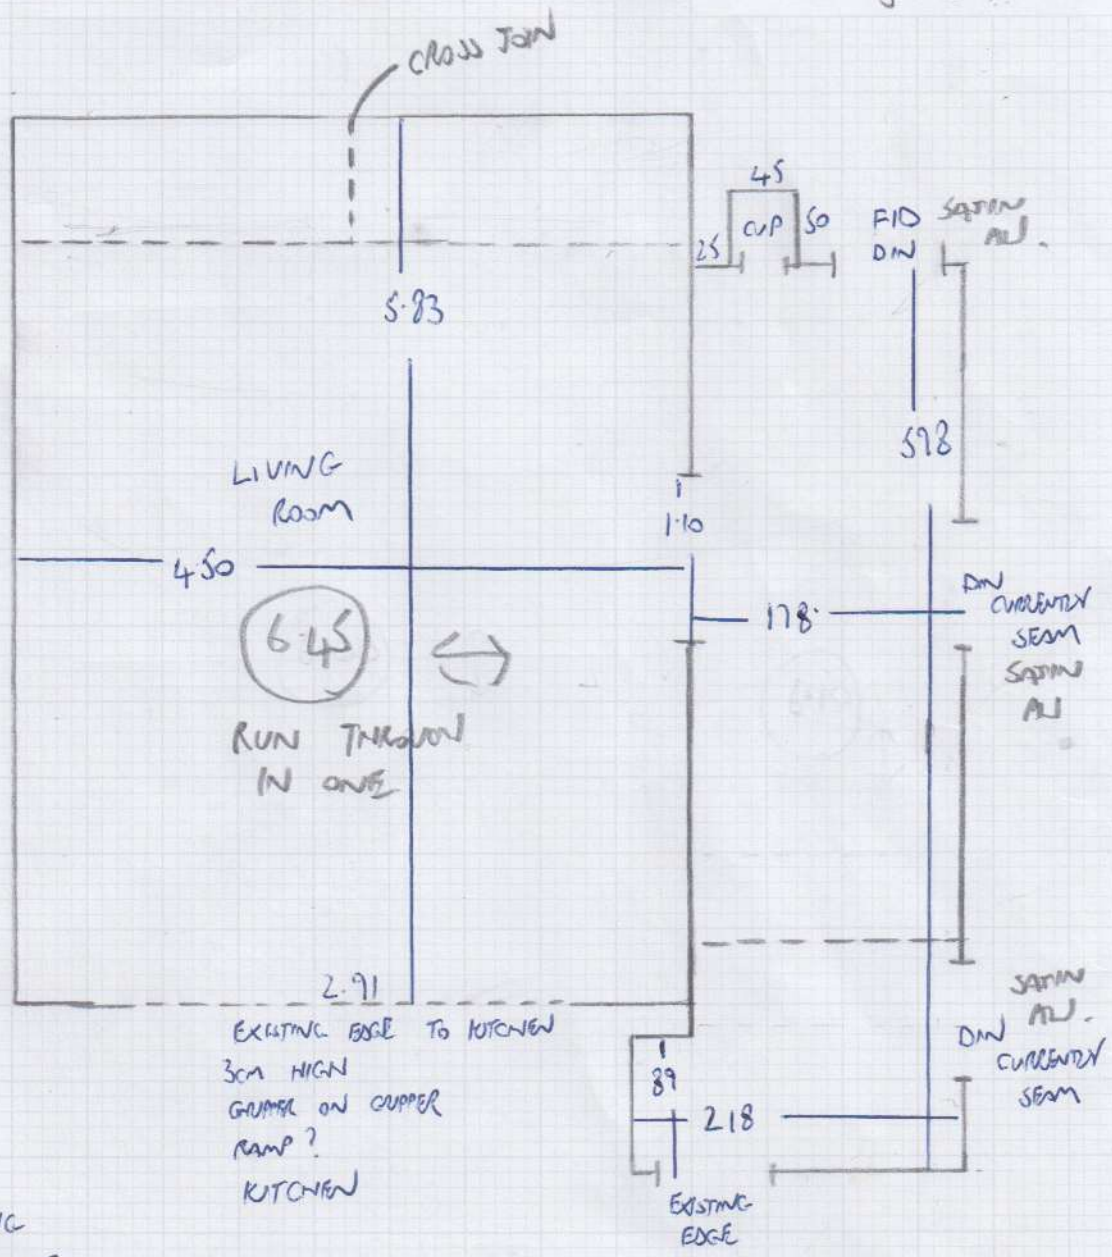 CROSS JOIN
45
CUP
50
25
FID
DIN
SATIN
ALI.
5.83
598
LIVING
ROOM
1.10
4.50
178
DIN
CURRENTLY
SEAM
SATIN
ALI
6.45
RUN THROUGH
IN ONE
2.91
EXISTING EDGE TO KITCHEN
3CM HIGH
GRIPPER ON GRIPPER
RAMP?
KITCHEN
SATIN
ALI.
DIN
CURRENTLY
SEAM
89
218
EXISTING
EDGE